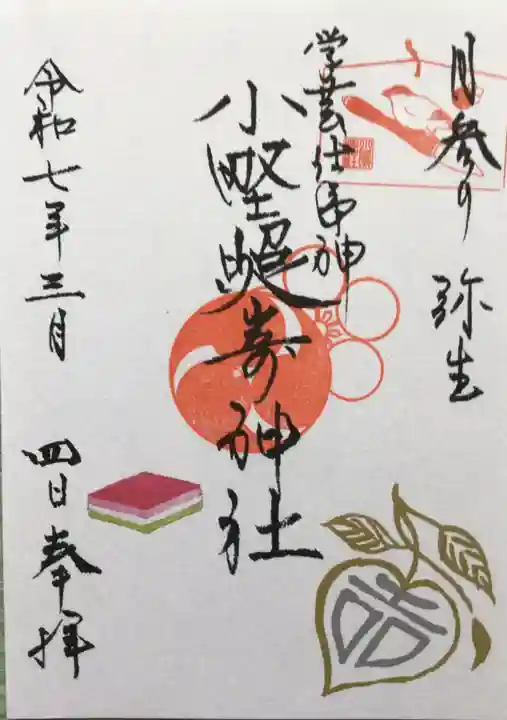 月参り 弥生
学芸仕事神
小野照崎神社
令和七年三月 四日奉拝